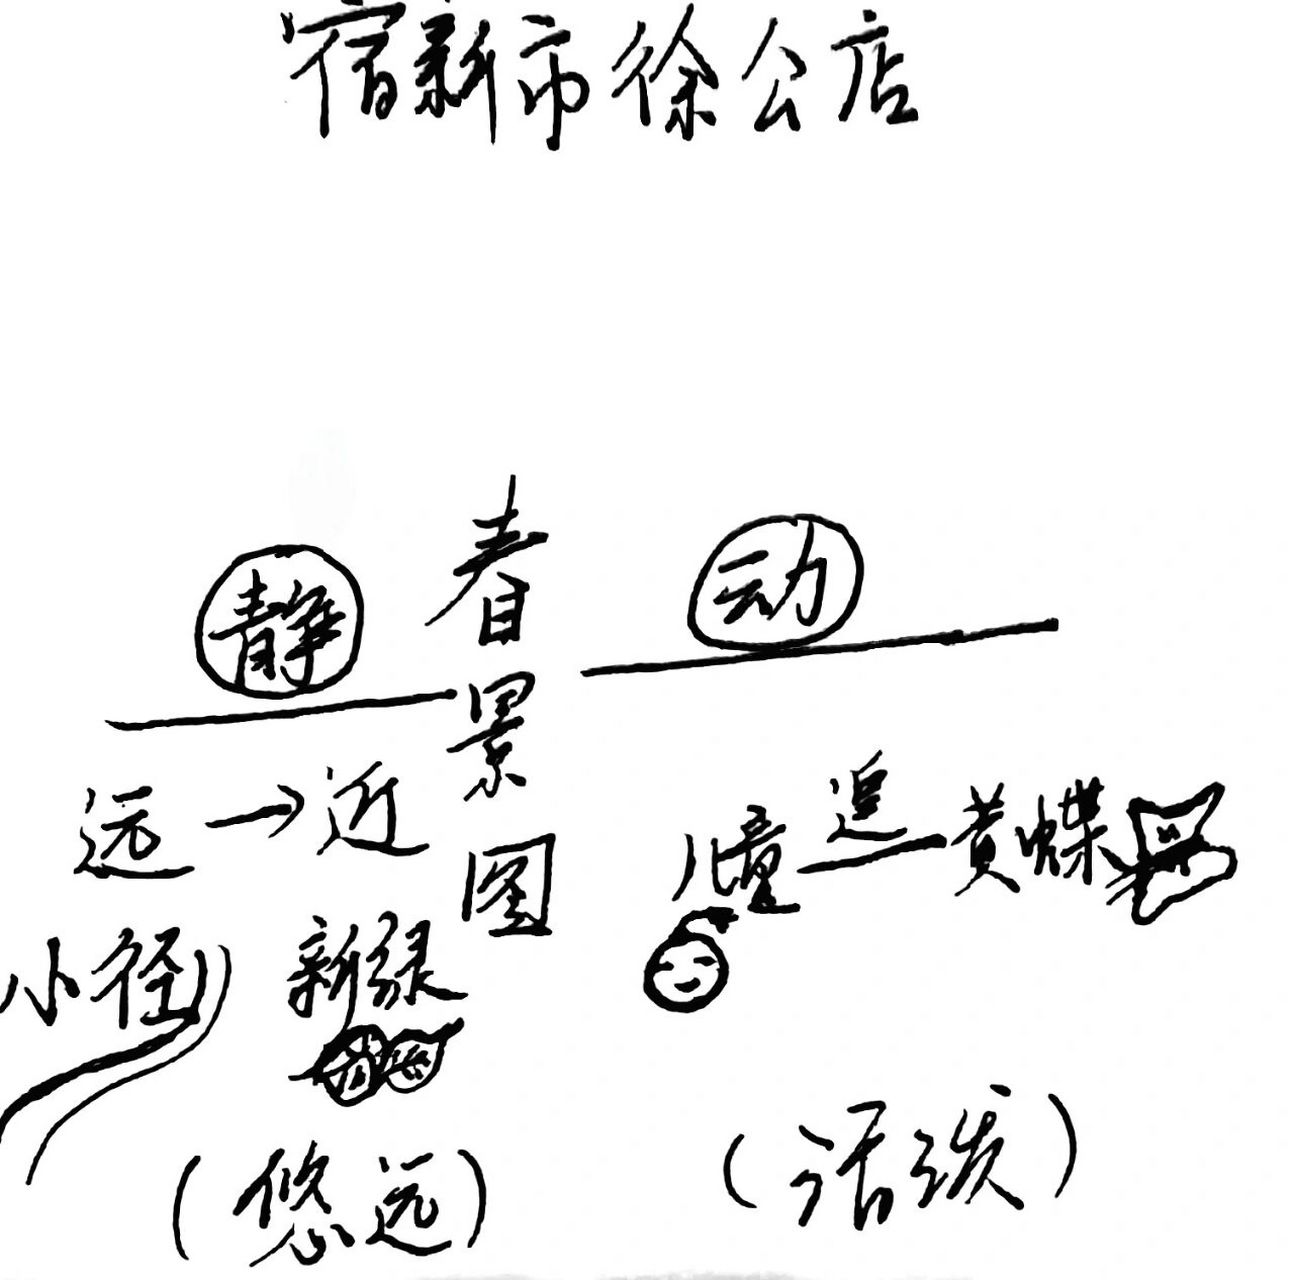 宿新市徐公店
静
春景图
动
远→近
儿童追黄蝶
小径
新绿
(悠远)
(活泼)